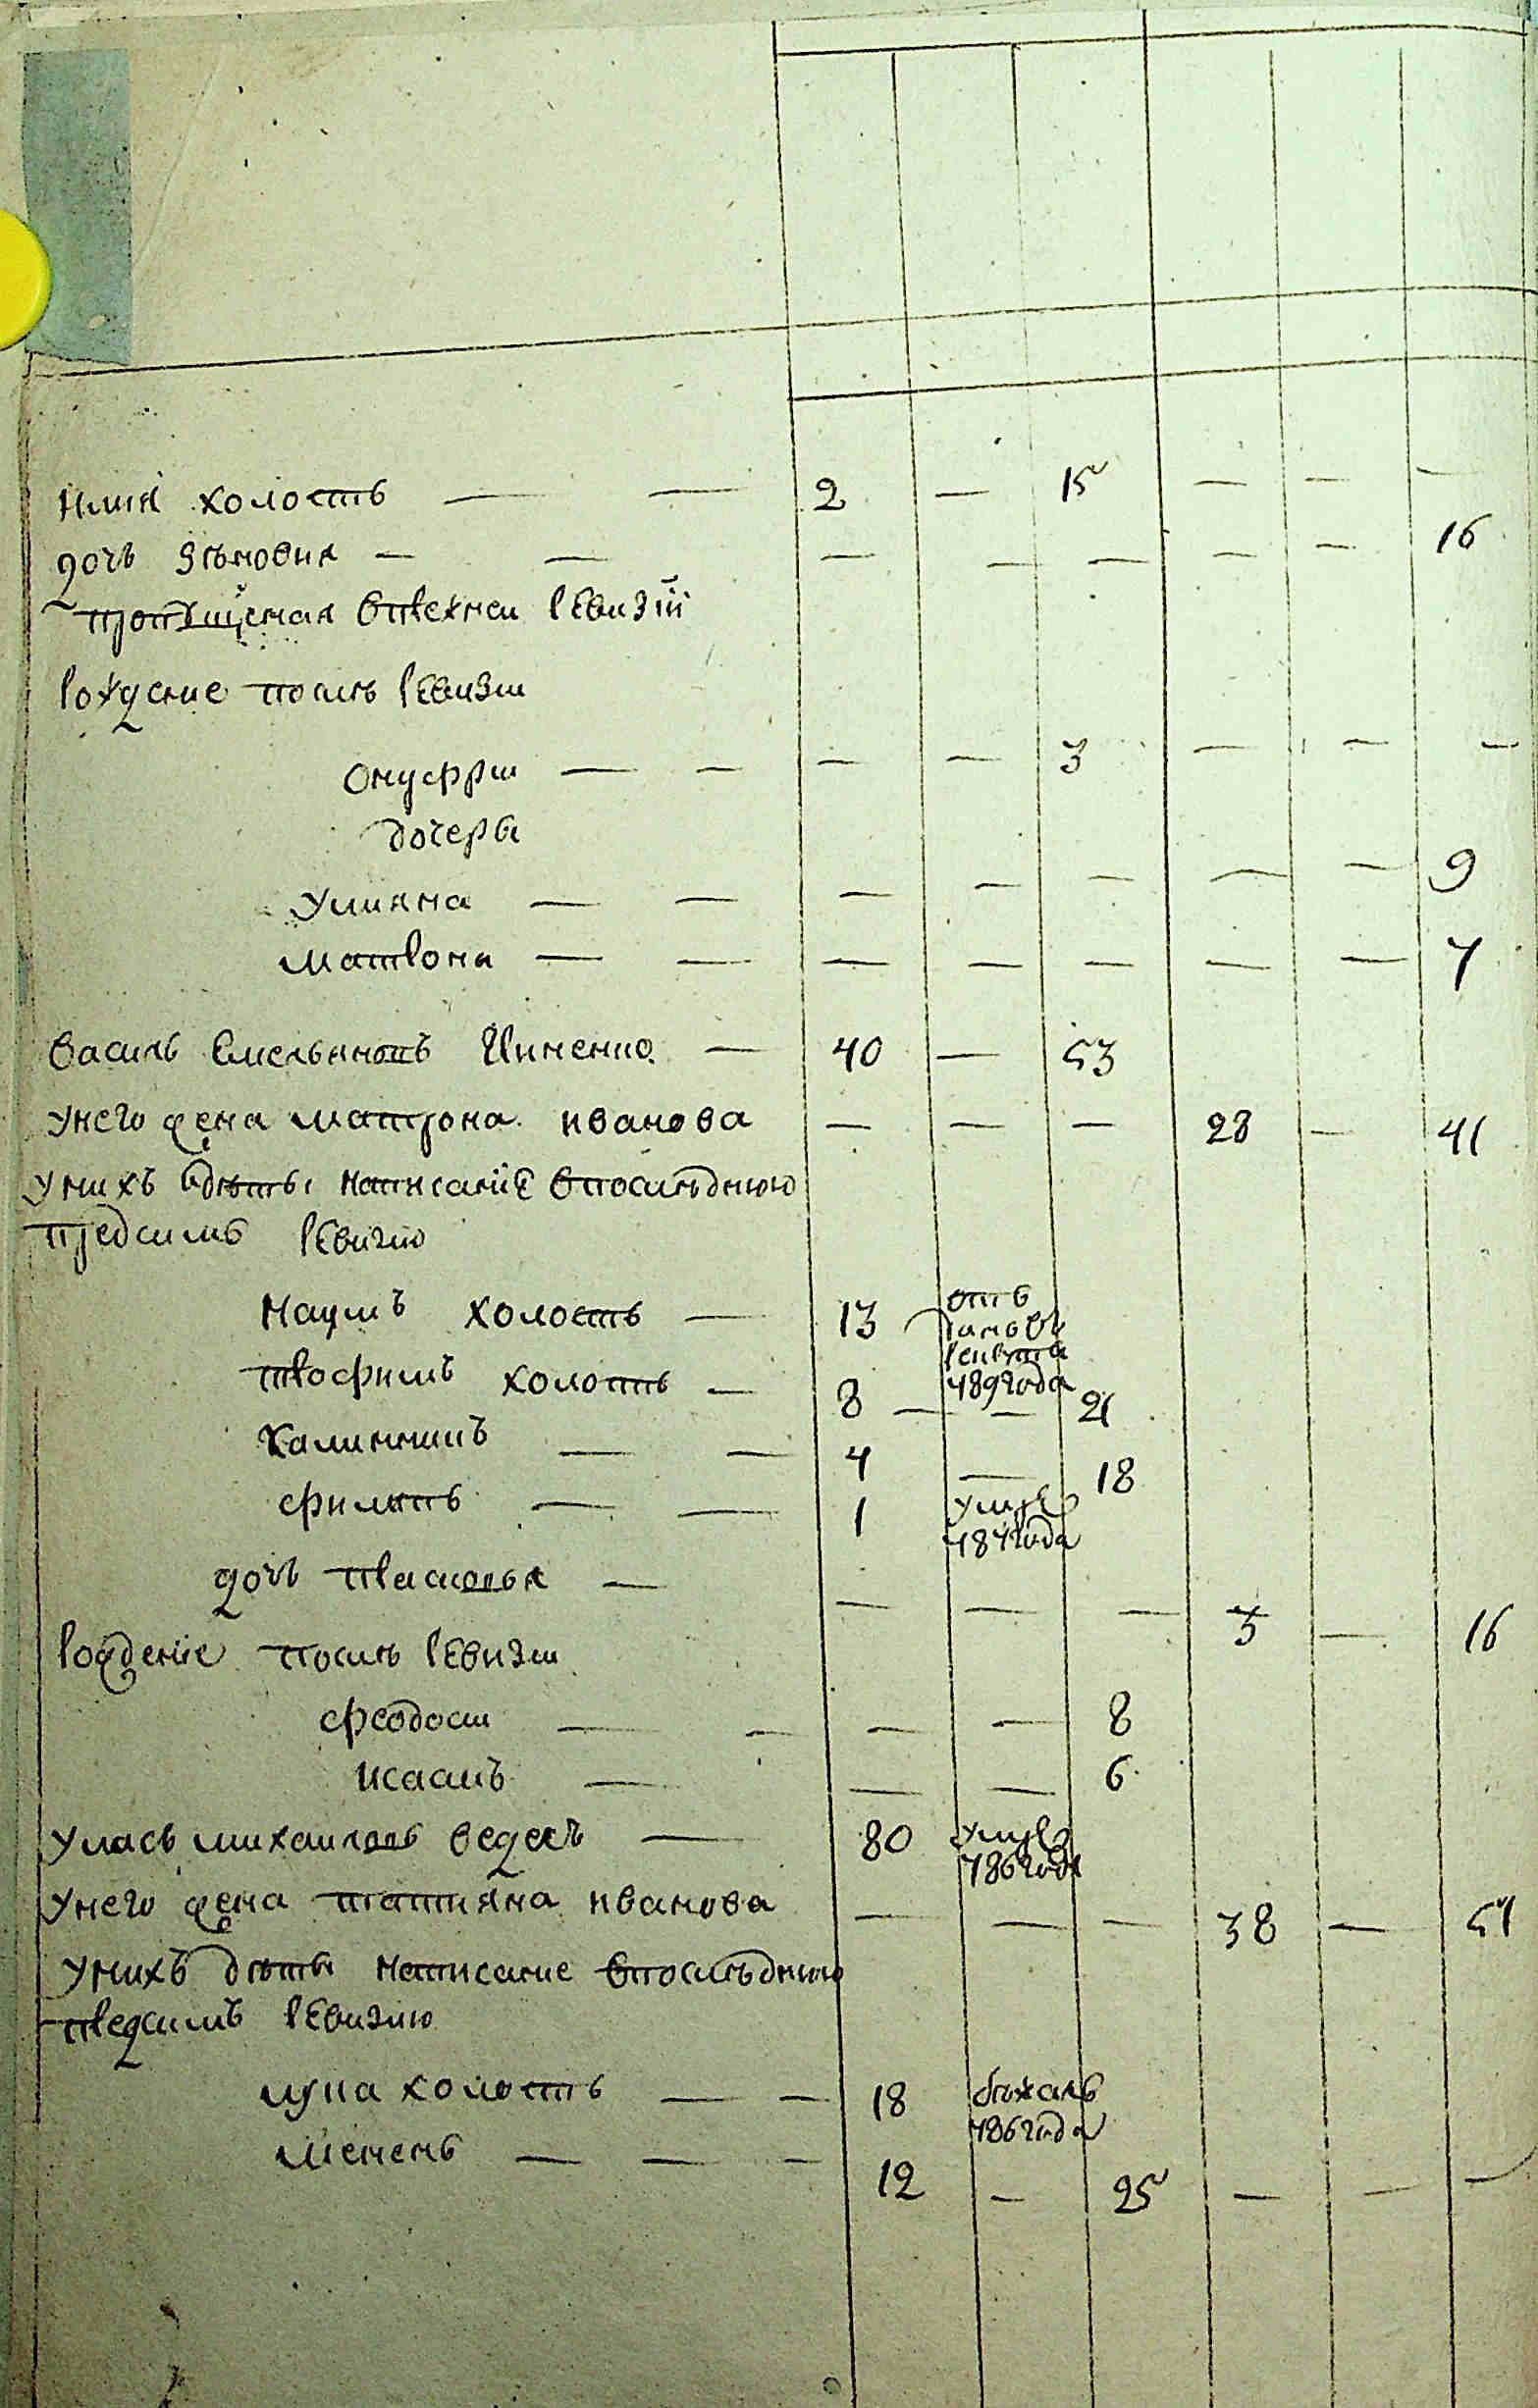 Илия холостъ — — 2 — 15 — — —
дочь Зѣновия — — — — — — — 16
пропущеная впрежнеи ревизіи
рожденые послѣ ревизии
Онуфрии — — — — 3 — — —
дочеры
Улияна — — — — — — — 9
Матрона — — — — — — — 7
Василь Емельяновъ — 40 — 53
унего жена матрона иванова — — — 28 — 41
унихъ дѣты написаніе впослѣднюю
предсимъ ревизию
Наумъ холостъ — 13 отъ
1789 года
трофимъ холостъ — 8 — — 21
Калинникъ — — 4 — 18
филатъ — — 1 умре
784 года
дочь прасковья — — — — 3 — 16
рожденіе послѣ ревизии
феодосии — — — — 8
исаакъ — — — 6
Уласъ михаиловъ — 80 умре
786 года
унего жена татияна иванова — — — 38 — 51
унихъ дѣты написание впослѣднюю
предсимъ ревизию
лука холостъ — — 18 бежалъ
786 года
Мененъ — — — 12 — 25 — — —